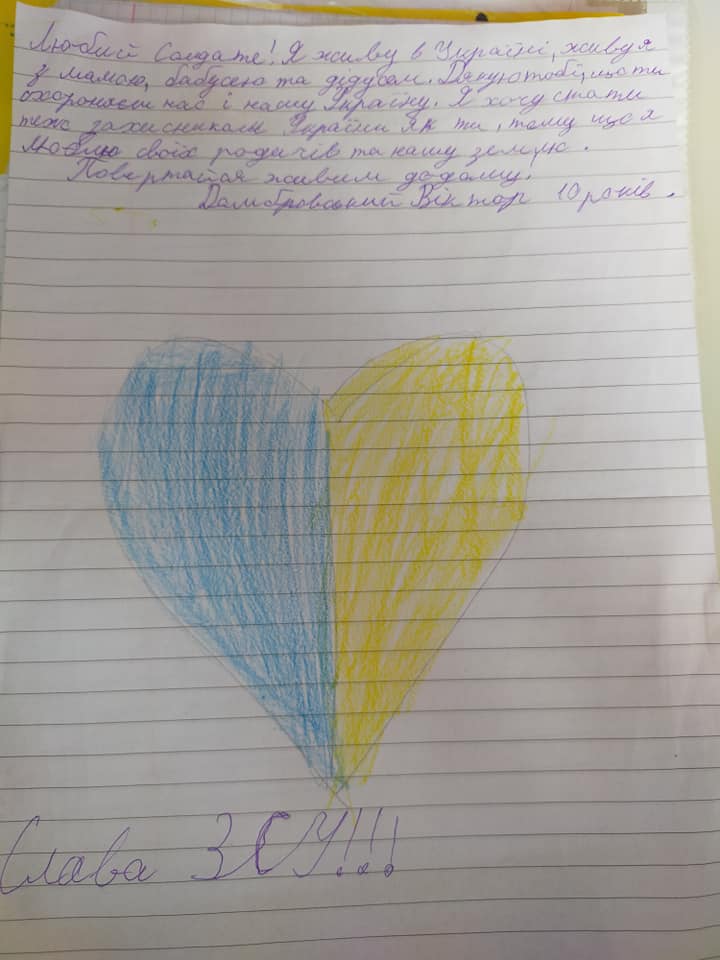 Любий Солдате! Я живу в Україні, живу я
з мамою, бабусею та дідусем. Дякую тобі, що ти
охороняєш нас і нашу Україну. Я хочу стати
теж захисником України як ти, тому що я
люблю своїх родичів та нашу землю.
Повертайся живим додому.
Домбровський Віктор 10 років.
Слава ЗСУ!!!